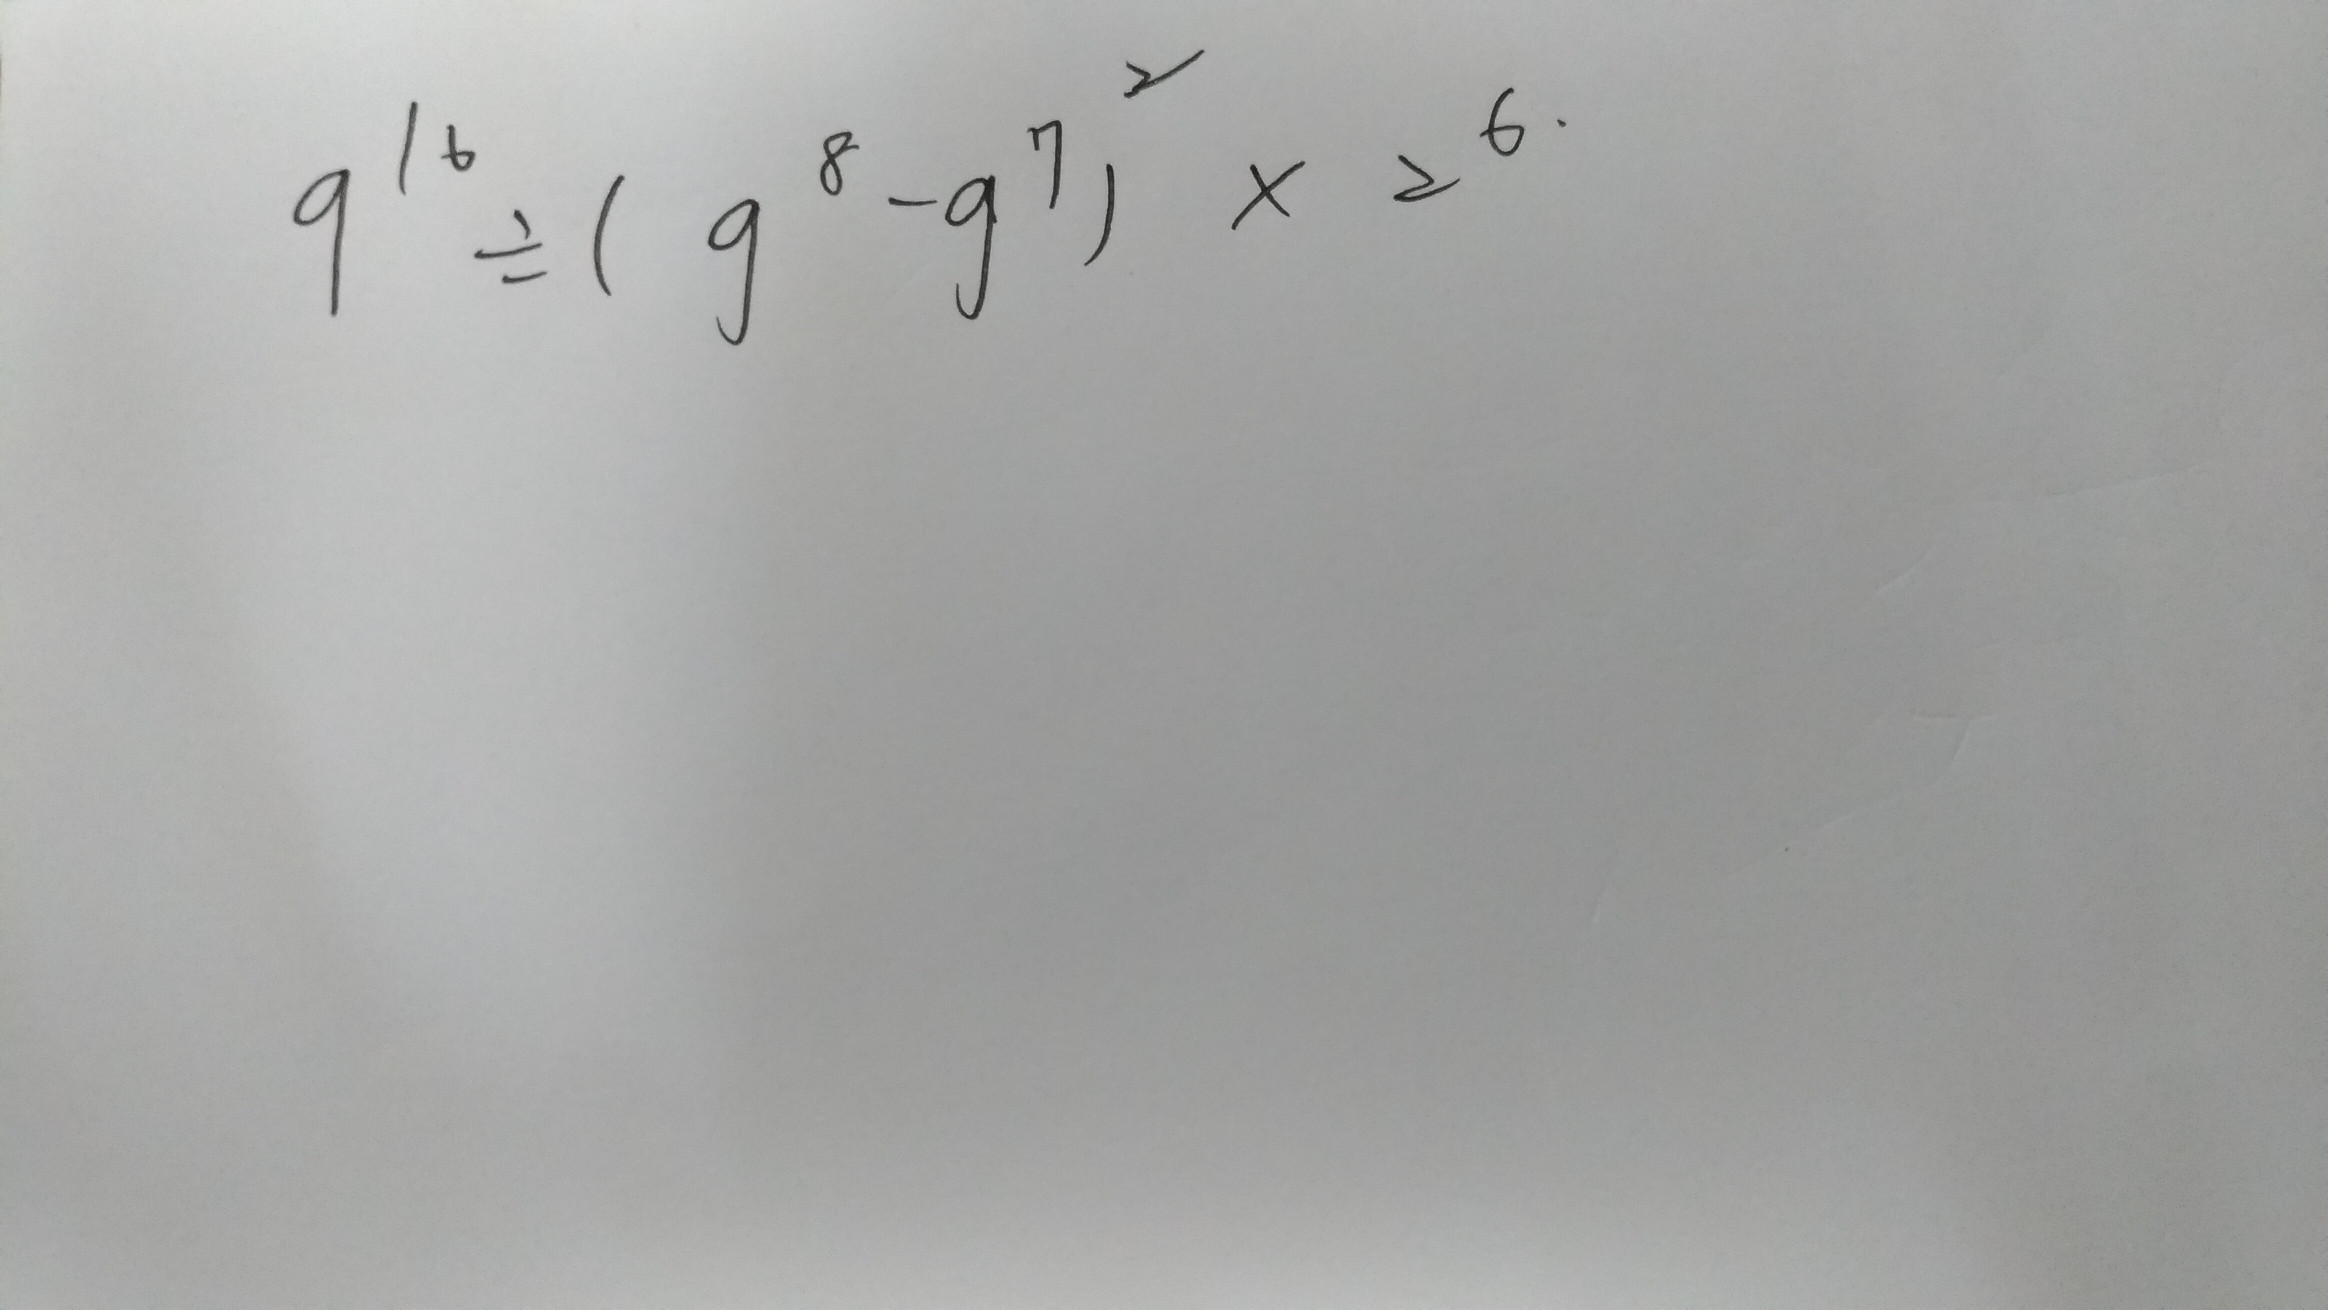 9¹⁶ ÷ (9⁸ - 9⁷)² × 2⁶.